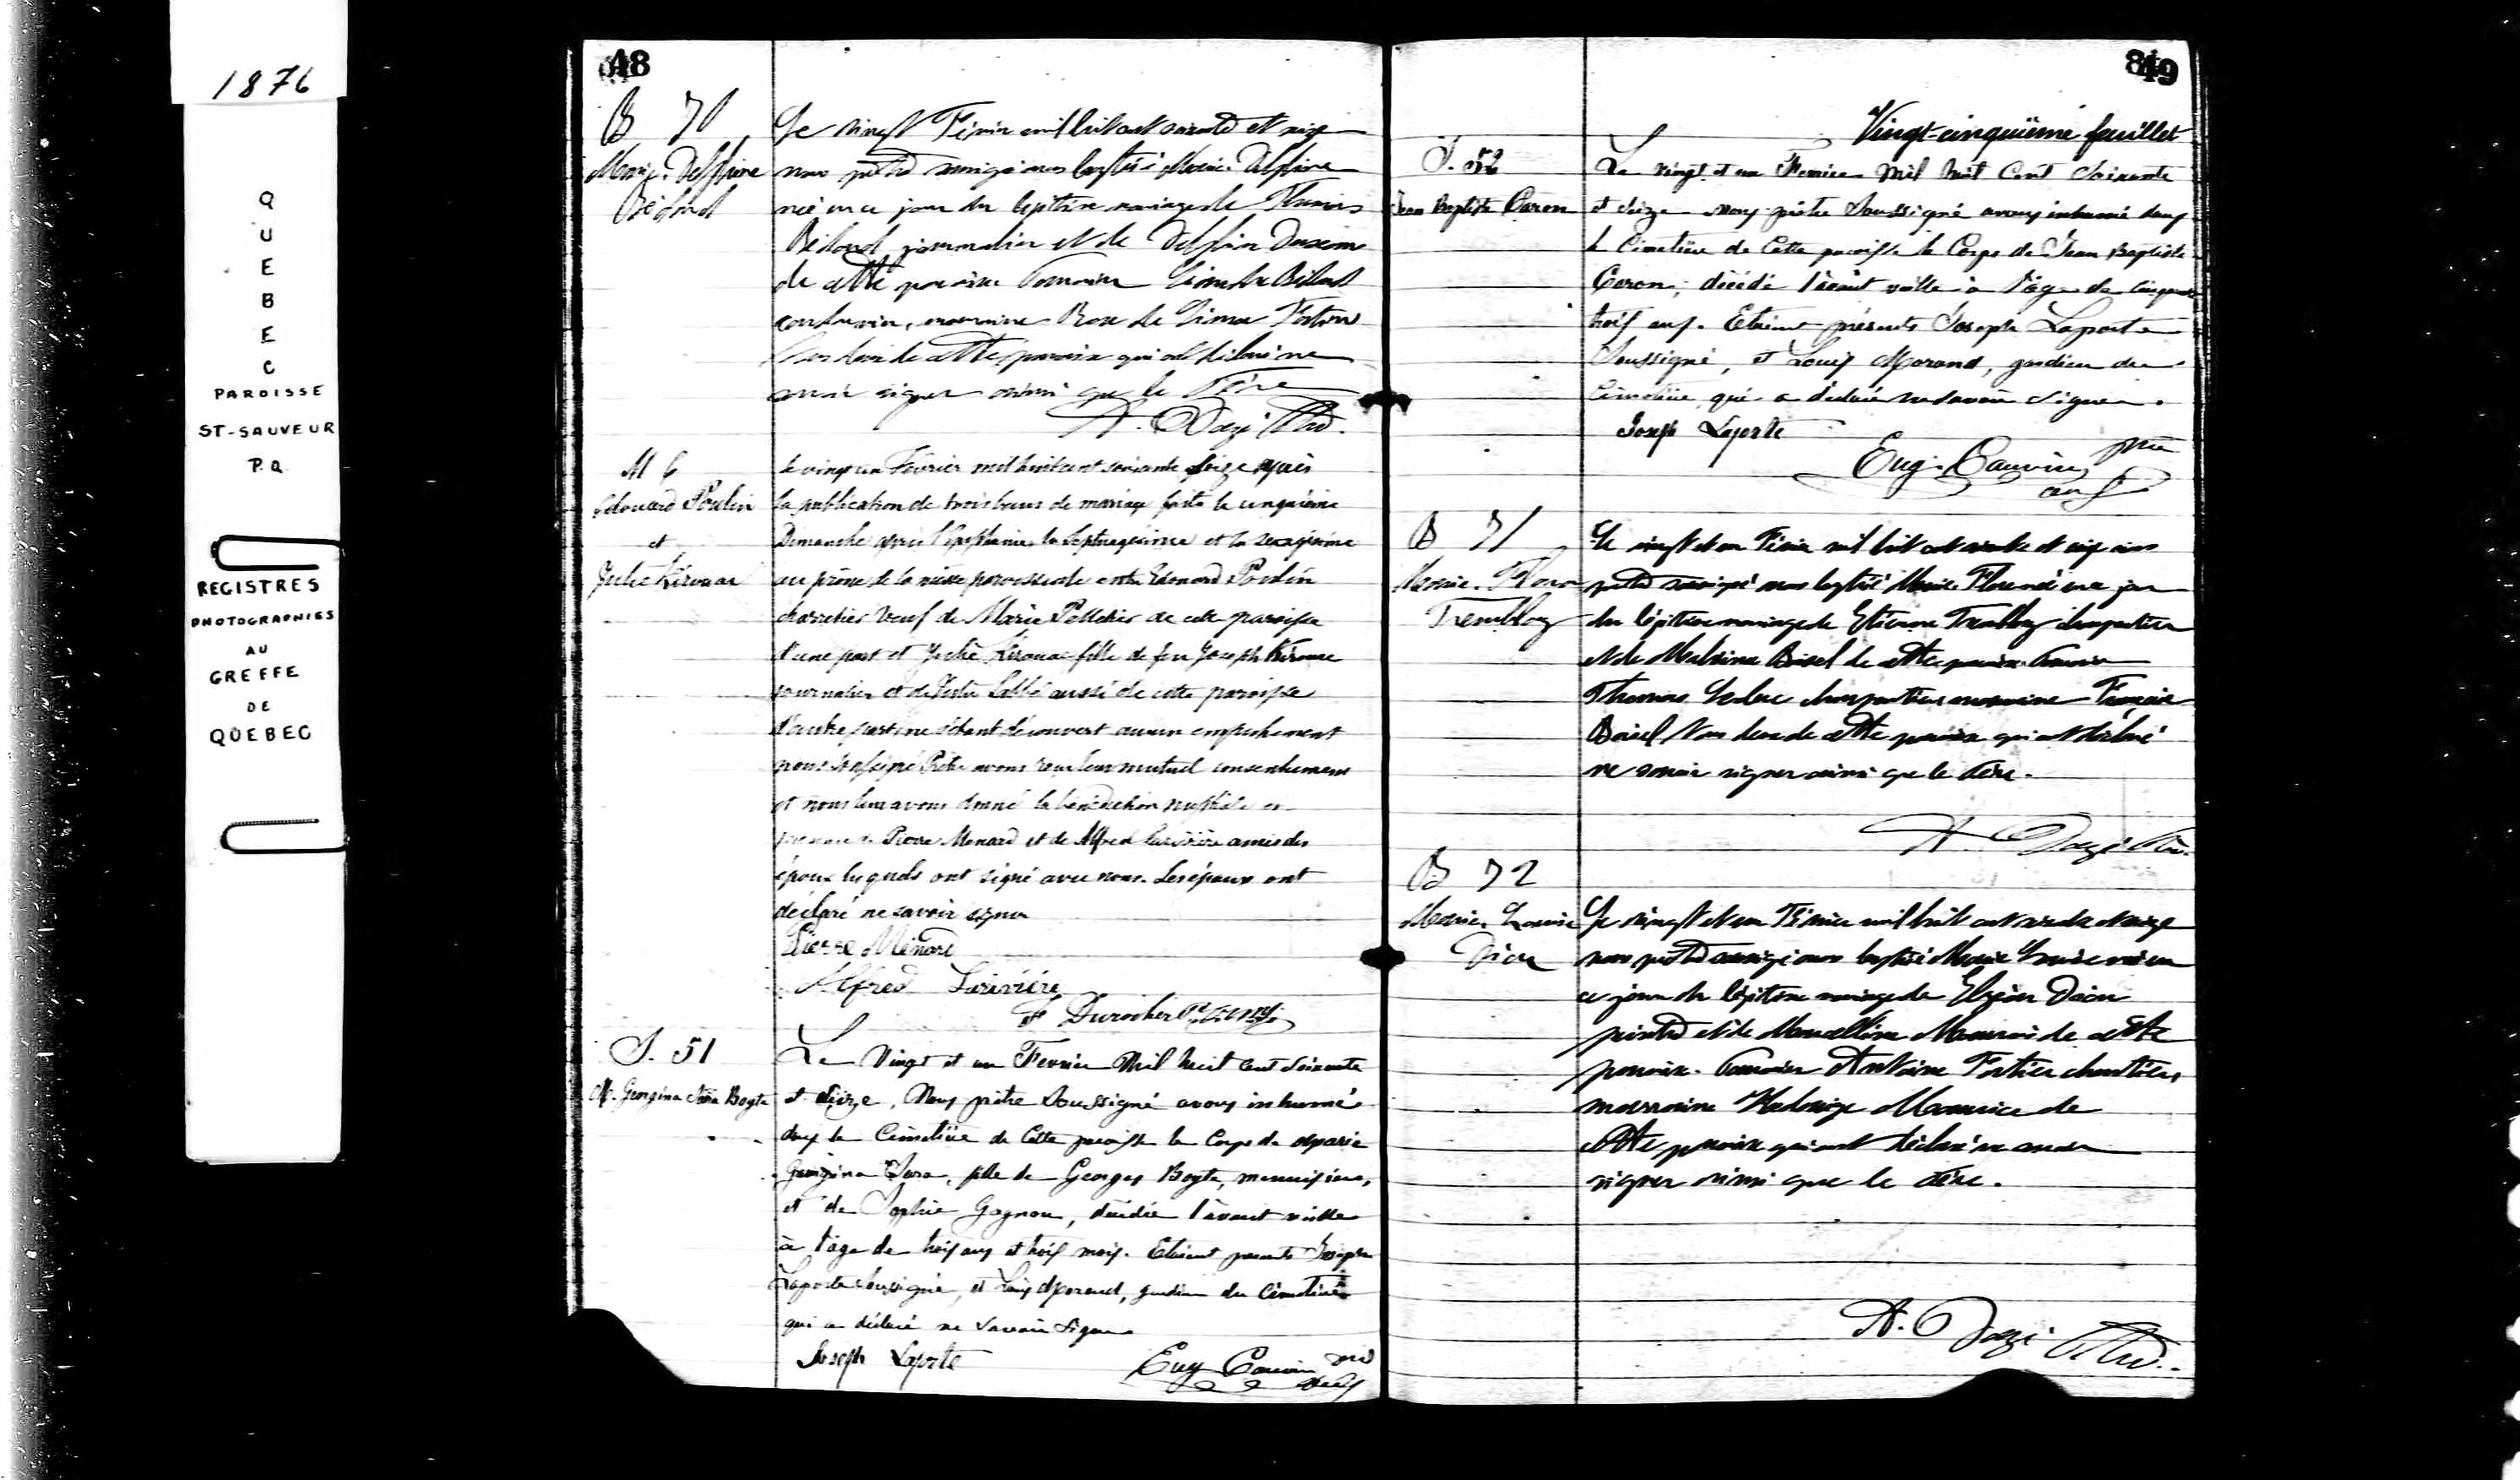 1876
QUEBEC
PAROISSE
ST-SAUVEUR
P.Q
REGISTRES
PHOTOGRAPHIES
AU
GREFFE
DE
QUEBEC
48
B 70
Marie Delphine
Bédard
Le vingt Février mil huit cent soixante et seize
nous prêtre soussigné avons baptisé Marie Delphine
née en ce jour du légitime mariage de
Bédard journalier et de
de cette paroisse Parrain
cordonnier, marraine Rose de Lima Fortin
tous deux de cette paroisse qui ont déclaré ne
savoir signer ainsi que le Père
M 6
Edouard Poulin
et
Julie Kirouac
le vingt un Février mil huit cent soixante seize après
la publication de trois bans de mariage faite le cinquième
Dimanche après l'Epiphanie, la Septuagésime et la sexagésime
au prône de la messe paroissiale entre Edouard Poulin
charretier veuf de Marie Pelletier de cette paroisse
d'une part et Julie Kirouac fille de feu Joseph Kirouac
journalier et de Julie Labbé aussi de cette paroisse
d'autre part ne s'étant découvert aucun empêchement
nous soussigné Prêtre avons reçu leur mutuel consentement
et nous leur avons donné la bénédiction nuptiale en
présence de Pierre Menard et de Alfred Larivière amis des
époux lesquels ont signé avec nous. Les époux ont
déclaré ne savoir signer
Pierre Ménard
Alfred Larivière
F Durocher Ptre O.M.I.
S. 51
M. Georgina Sara Bogte
Le Vingt et un Fevrier Mil huit cent Soixante
et Seize, Nous prêtre Soussigné avons inhumé
dans le Cimetière de Cette paroisse le Corps de Marie
Georgina Sara, fille de Georges Bogte, menuisier,
et de Sophie Gagnon, décédée l'avant veille
à l'âge de trois ans et trois mois. Etaient présents Joseph
Laporte soussigné, et Louis Morand, gardien du Cimetière
qui a déclaré ne Savoir Signer
Joseph Laporte
Eug Cauvin ptre
49
Vingt-cinquième feuillet
S. 52
Jean Baptiste Caron
Le vingt et un Fevrier Mil huit Cent Soixante
et Seize nous prêtre Soussigné avons inhumé dans
le Cimetière de Cette paroisse le Corps de Jean Baptiste
Caron, décédé l'avant veille à l'âge de Cinquante
trois ans. Etaient présents Joseph Laporte
Soussigné, et Louis Morand, gardien du
Cimetière, qui a déclaré ne Savoir Signer.
Joseph Laporte
Eug. Cauvin ptre
B 71
Marie Flora
Tremblay
Le vingt et un Février mil huit cent soixante et seize nous
prêtre soussigné avons baptisé Marie Flora née en ce jour
du légitime mariage de Etienne Tremblay charpentier
et de Malvina Boisel de cette paroisse Parrain
Thomas Leduc charpentier marraine
Boisel tous deux de cette paroisse qui ont déclaré
ne savoir signer ainsi que le Père.
B 72
Marie Louise
Dion
Le vingt et un Février mil huit cent soixante et seize
nous prêtre soussigné avons baptisé Marie Louise née en
ce jour du légitime mariage de Elzéar Dion
peintre et de Marcelline de cette
paroisse. Parrain Antoine Fortier charretier,
marraine Hedwige Maurice de
cette paroisse qui ont déclaré ne savoir
signer ainsi que le Père.